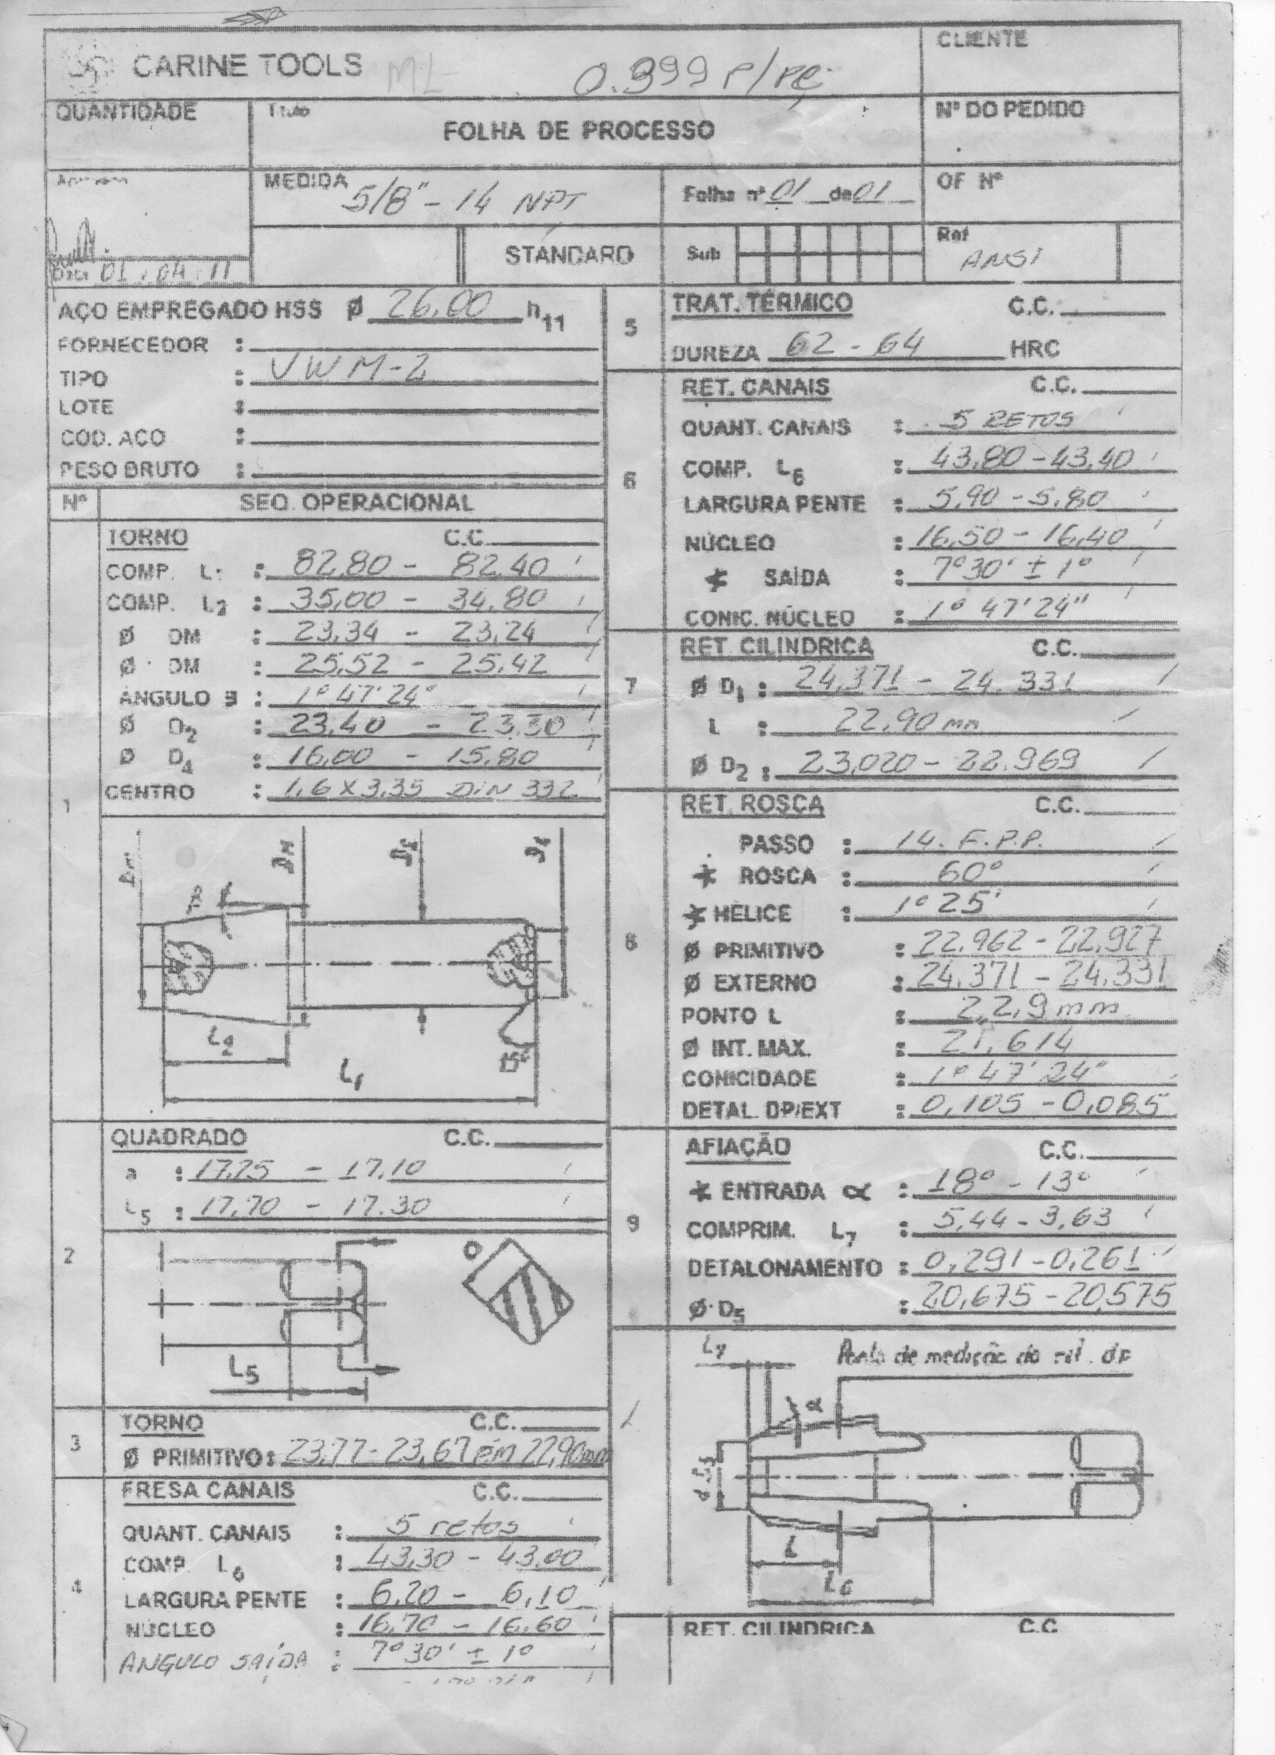 CARINE TOOLS ML 0.399 P/PÇ.
CLIENTE
QUANTIDADE
Titulo
FOLHA DE PROCESSO
Nº DO PEDIDO
MEDIDA 5/8"- 14 NPT
Folha nº 01 de 01
OF Nº
Data 01.04.11
STANDARD
Sub
Ref ANSI
AÇO EMPREGADO HSS Ø 26,00 h11
FORNECEDOR :
TIPO : VWM-2
LOTE :
COD. AÇO :
PESO BRUTO :
Nº SEQ. OPERACIONAL
1
TORNO C.C.
COMP. L1 : 82,80 - 82,40
COMP. L2 : 35,00 - 34,80
Ø DM : 23,34 - 23,24
Ø DM : 25,52 - 25,42
ÂNGULO B : 1º 47' 24"
Ø D2 : 23,40 - 23,30
Ø D4 : 16,00 - 15,80
CENTRO : 1,6 X 3,35 DIN 332
Dm DM D2 D4
L2
15º
L1
2
QUADRADO C.C.
a : 17,25 - 17,10
L5 : 17,70 - 17.30
L5
3
TORNO C.C.
Ø PRIMITIVO: 23,77-23,67 em 22,90mm
4
FRESA CANAIS C.C.
QUANT. CANAIS : 5 retos
COMP. L6 : 43,30 - 43,00
LARGURA PENTE : 6,20 - 6,10
NÚCLEO : 16,70 - 16,60
ANGULO SAÍDA : 7º 30' ± 1º
5
TRAT. TÉRMICO C.C.
DUREZA 62 - 64 HRC
6
RET. CANAIS C.C.
QUANT. CANAIS : 5 RETOS
COMP. L6 : 43,80 - 43,40
LARGURA PENTE : 5,90 - 5,80
NÚCLEO : 16,50 - 16,40
SAÍDA : 7º 30' ± 1º
CONIC. NÚCLEO : 1º 47' 24"
7
RET. CILINDRICA C.C.
Ø D1 : 24,371 - 24.331
L : 22,90 mm
Ø D2 : 23,020 - 22.969
8
RET. ROSCA C.C.
PASSO : 14. F.P.P.
ROSCA : 60º
HÉLICE : 1º 25'
Ø PRIMITIVO : 22,962 - 22,927
Ø EXTERNO : 24,371 - 24,331
PONTO L : 22,9 mm
Ø INT. MAX. : 21,614
CONICIDADE : 1º 47' 24"
DETAL. DP/EXT : 0,105 - 0,085
9
AFIAÇÃO C.C.
ENTRADA α : 18º - 13º
COMPRIM. L7 : 5,44 - 3,63
DETALONAMENTO : 0,291-0,261
Ø D5 : 20,675 - 20,575
L7 Ponto de medição do rel. dp
α
d D5
L
L6
RET. CILINDRICA C.C